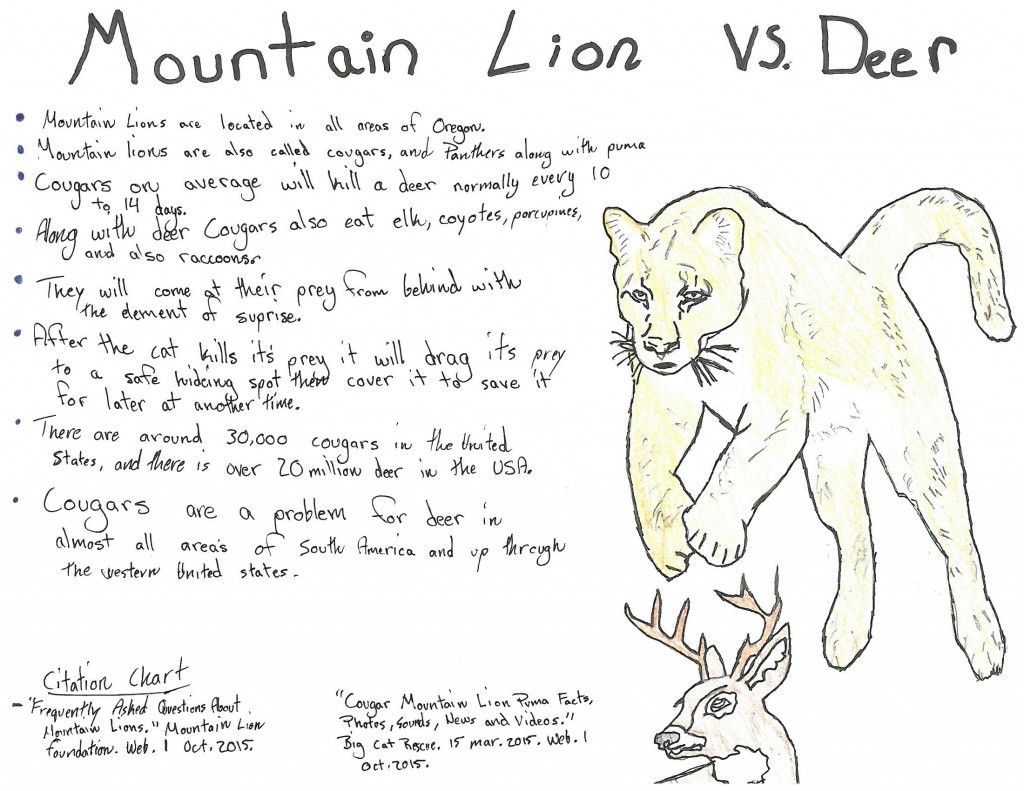 Mountain Lion VS. Deer
• Mountain Lions are located in all areas of Oregon.
• Mountain lions are also called cougars, and Panthers along with puma
• Cougars on average will kill a deer normally every 10
to 14 days.
• Along with deer Cougars also eat elk, coyotes, porcupines,
and also raccoons.
• They will come at their prey from behind with
the element of suprise.
• After the cat kills it's prey it will drag it's prey
to a safe hideing spot then cover it to save it
for later at another time.
• There are around 30,000 cougars in the United
States, and there is over 20 million deer in the USA.
• Cougars are a problem for deer in
almost all area's of South America and up through
the western United states.
Citation Chart
- "Frequently Asked Questions About
Mountain Lions." Mountain Lion
foundation. Web. 1 Oct. 2015.
"Cougar Mountain Lion Puma Facts,
Photos, Sounds, News and Videos."
Big Cat Rescue. 15 mar. 2015. Web. 1
Oct. 2015.